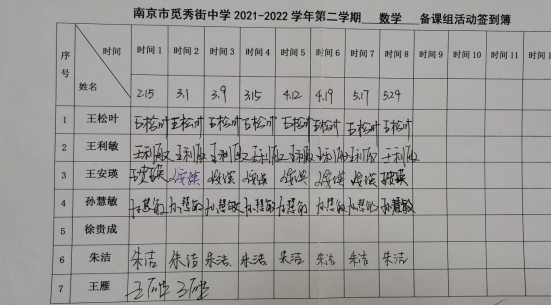 南京市觅秀街中学 2021-2022 学年第二学期 数学 备课组活动签到簿
序号 时间 姓名 时间 1 时间 2 时间 3 时间 4 时间 5 时间 6 时间 7 时间 8 时间 9 时间 10 时间 11
2.15 3.1 3.9 3.15 4.12 4.19 5.17 5.24
1 王松叶 王松叶 王松叶 王松叶 王松叶 王松叶 王松叶 王松叶 王松叶
2 王利敏 王利敏 王利敏 王利敏 王利敏 王利敏 王利敏 王利敏 王利敏
3 王安瑛
4 孙慧敏 孙慧敏 孙慧敏 孙慧敏 孙慧敏 孙慧敏 孙慧敏 孙慧敏 孙慧敏
5 徐贵成
6 朱洁 朱洁 朱洁 朱洁 朱洁 朱洁 朱洁 朱洁 朱洁
7 王雁 王雁 王雁